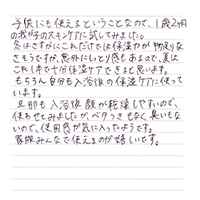 子供にも使えるということなので、1歳2ヶ月
の我が子のスキンケアに試してみました。
冬はさすがにこれだけでは保湿力が物足りな
さそうですが、意外にしっとり感もあるので、夏は
これ1本で十分保湿ケアできると思います。
もちろん自分も入浴後の保湿ケアに使って
います。
旦那も入浴後 顔が乾燥しやすいので、
使わせてみましたが、ベタつきもなく臭いもな
いので、使用感が気に入ったようです。
家族みんなで使えるのが嬉しいです。